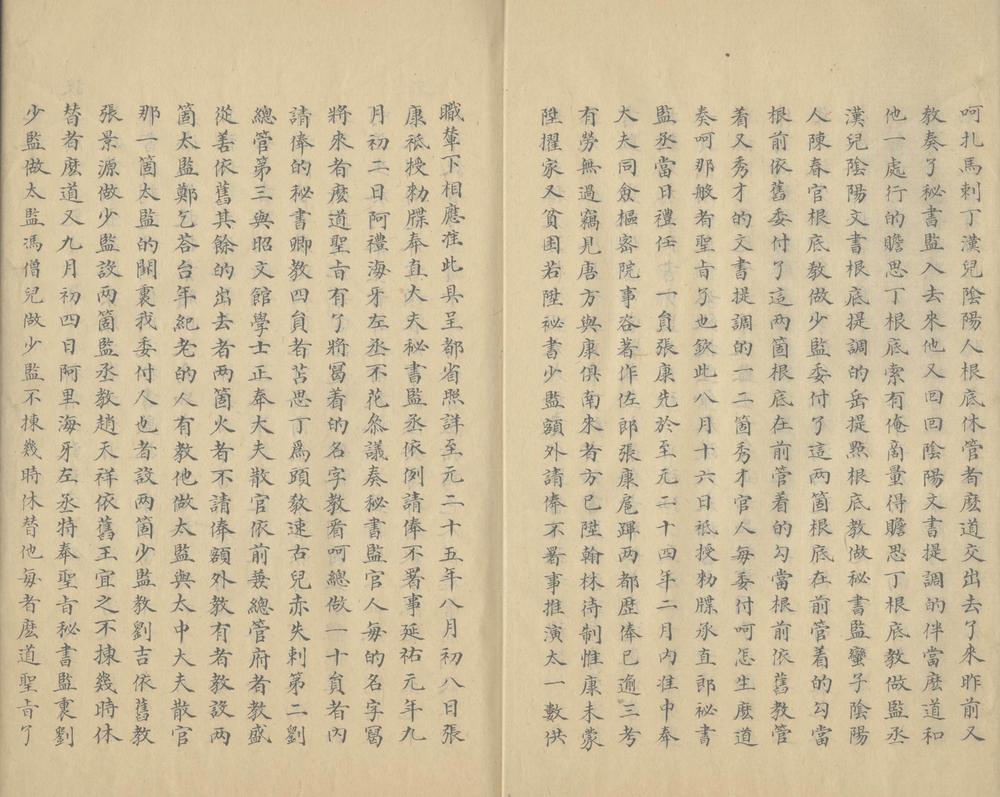 呵扎馬剌丁漢兒陰陽人根底休管者麽道交出去了來昨前又
教奏了秘書監入去來他又回回陰陽文書提調的伴當麽道和
他一處行的贍思丁根底索有俺商量得贍思丁根底教做監丞
漢兒陰陽文書根底提調的岳提㸃根底教做秘書監蠻子陰陽
人陳春官根底教做少監委付了這兩箇根底在前管着的勾當
根前依舊委付了這兩箇根底在前管着的勾當根前依舊教管
着又秀才的文書提調的一二箇秀才官人每委付呵怎生麽道
奏呵那般者聖旨了也欽此八月十六日祗授勑牒承直郎秘書
監丞當日禮任　一員張康先於至元二十四年二月內准中奉
大夫同僉樞密院事咨著作佐郎張康扈蹕两都歴俸已逾三考
有勞無過竊見唐方與康俱南来者方已陞翰林待制惟康未蒙
陞擢家又貧困若陞祕書少監額外請俸不署事推演太一數供
職輦下相應准此具呈都省照詳至元二十五年八月初八日張
康祗授勑牒奉直大夫秘書監丞依例請俸不署事延祐元年九
月初二日阿禮海牙左丞不花叅議奏秘書監官人每的名字寫
將來者麽道聖旨有了將寫着的名字教看呵總做一十員者內
請俸的秘書卿教四員者苫思丁爲頭教速古兒赤失剌第二劉
總管第三與昭文館學士正奉大夫散官依前兼總管府者教盛
從善依舊其餘的出去者两箇火者不請俸額外教有者教設两
箇太監鄭乞荅台年紀老的人有教他做太監與太中大夫散官
那一箇太監的闕裏我委付人也者設两箇少監教劉吉依舊教
張景源做少監設两箇監丞教趙天祥依舊王宜之不揀幾時休
替者麽道又九月初四日阿里海牙左丞特奉聖旨秘書監裏劉
少監做太監馮僧兒做少監不揀幾時休替他每者麽道聖旨了